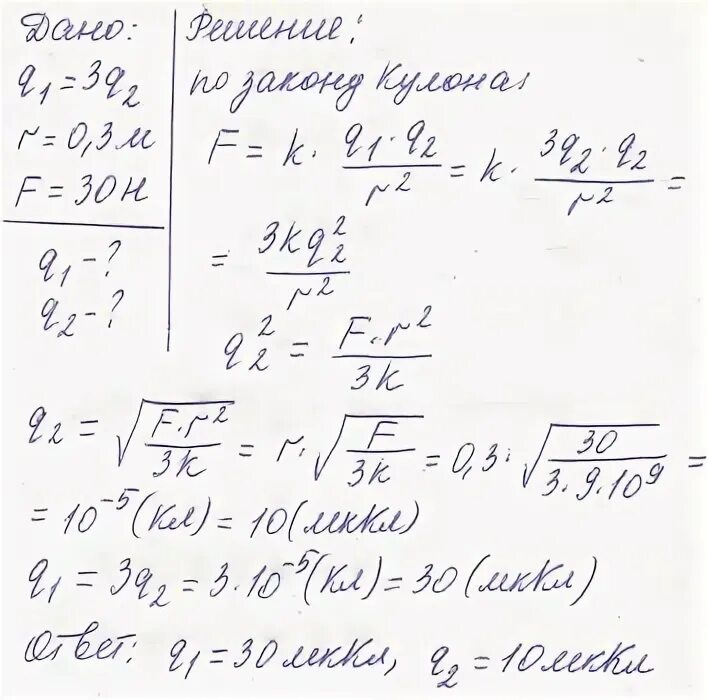 Дано:
q₁ = 3q₂
r = 0,3 м
F = 30 Н
q₁ - ?
q₂ - ?
Решение:
по закону Кулона:
F = k · q₁ · q₂ / r² = k · 3q₂ · q₂ / r² =
= 3kq₂² / r²
q₂² = F · r² / 3k
q₂ = √(F · r² / 3k) = r · √(F / 3k) = 0,3 · √(30 / 3 · 9 · 10⁹) =
= 10⁻⁵ (Кл) = 10 (мкКл)
q₁ = 3q₂ = 3 · 10⁻⁵ (Кл) = 30 (мкКл)
Ответ: q₁ = 30 мкКл, q₂ = 10 мкКл